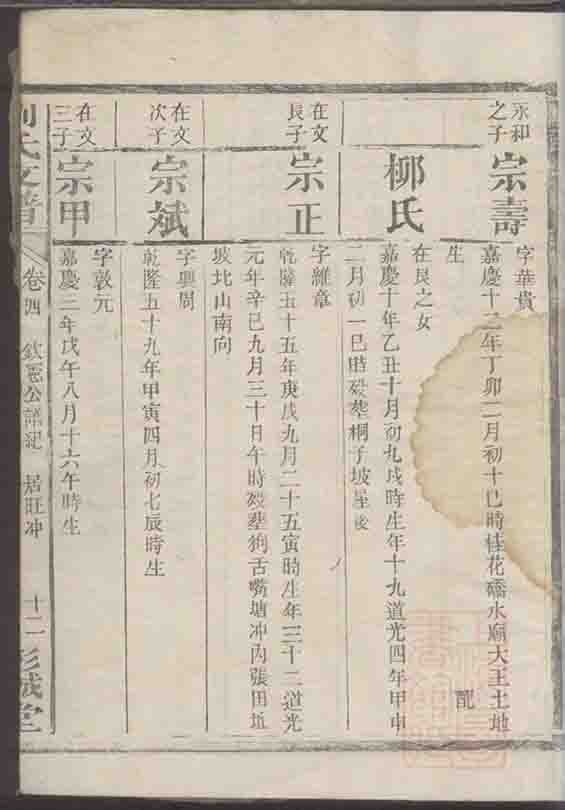 永和
之子
宗壽
字華貴
嘉慶十二年丁卯二月初十巳時桂花礄水廟大王土地
生　配
柳氏
在艮之女
嘉慶十年乙丑十月初九戌時生年十九道光四年甲申
二月初一巳時歿葬桐子坡屋後
在文
長子
宗正
字維章
乾隆五十五年庚戌九月二十五寅時生年三十二道光
元年辛巳九月三十日午時歿葬狗舌嘴塘冲內張田坵
坡北山南向
在文
次子
宗斌
字興周
乾隆五十九年甲寅四月初七辰時生
在文
三子
宗甲
字敦元
嘉慶三年戊午八月十六午時生
劉氏支譜
卷四
欽憲公譜記
居旺冲
十二
彭城堂